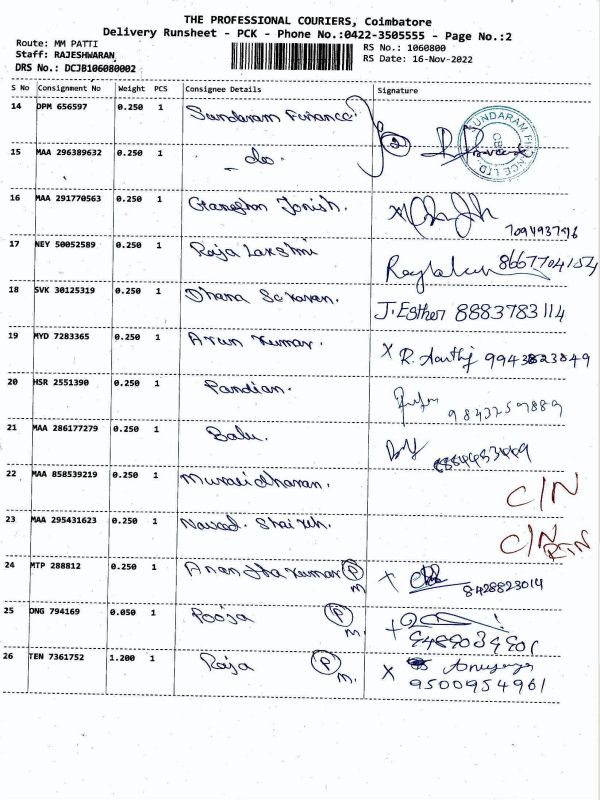 THE PROFESSIONAL COURIERS, Coimbatore
Delivery Runsheet - PCK - Phone No.:0422-3505555 - Page No.:2
Route: MM PATTI
Staff: RAJESHWARAN
DRS No.: DCJB106080002
RS No.: 1060800
RS Date: 16-Nov-2022
S No Consignment No Weight PCS Consignee Details Signature
14 DPM 656597 0.250 1 Sundaram Finance 2
SUNDARAM FINANCE LTD.
CBE
15 MAA 296389632 0.250 1 - do.
16 MAA 291770563 0.250 1
17 NEY 50052589 0.250 1 Raja Lakshmi 8667704154
18 SVK 30125319 0.250 1 Dhana Saravan. J. Esther 8883783114
19 MYD 7283365 0.250 1 Arun Kumar. X R. Aarthi 9943823849
20 HSR 2551390 0.250 1 Pandian. 9843759889
21 MAA 286177279 0.250 1 Balu.
22 MAA 858539219 0.250 1 Muralidharan. C/N
23 MAA 295431623 0.250 1 C/N RTN
24 MTP 288812 0.250 1 Anandha Kumar P M. X 8428823014
25 DNG 794169 0.050 1 Pooja P M. 9489039901
26 TEN 7361752 1.200 1 Raja P M. X
9500954961